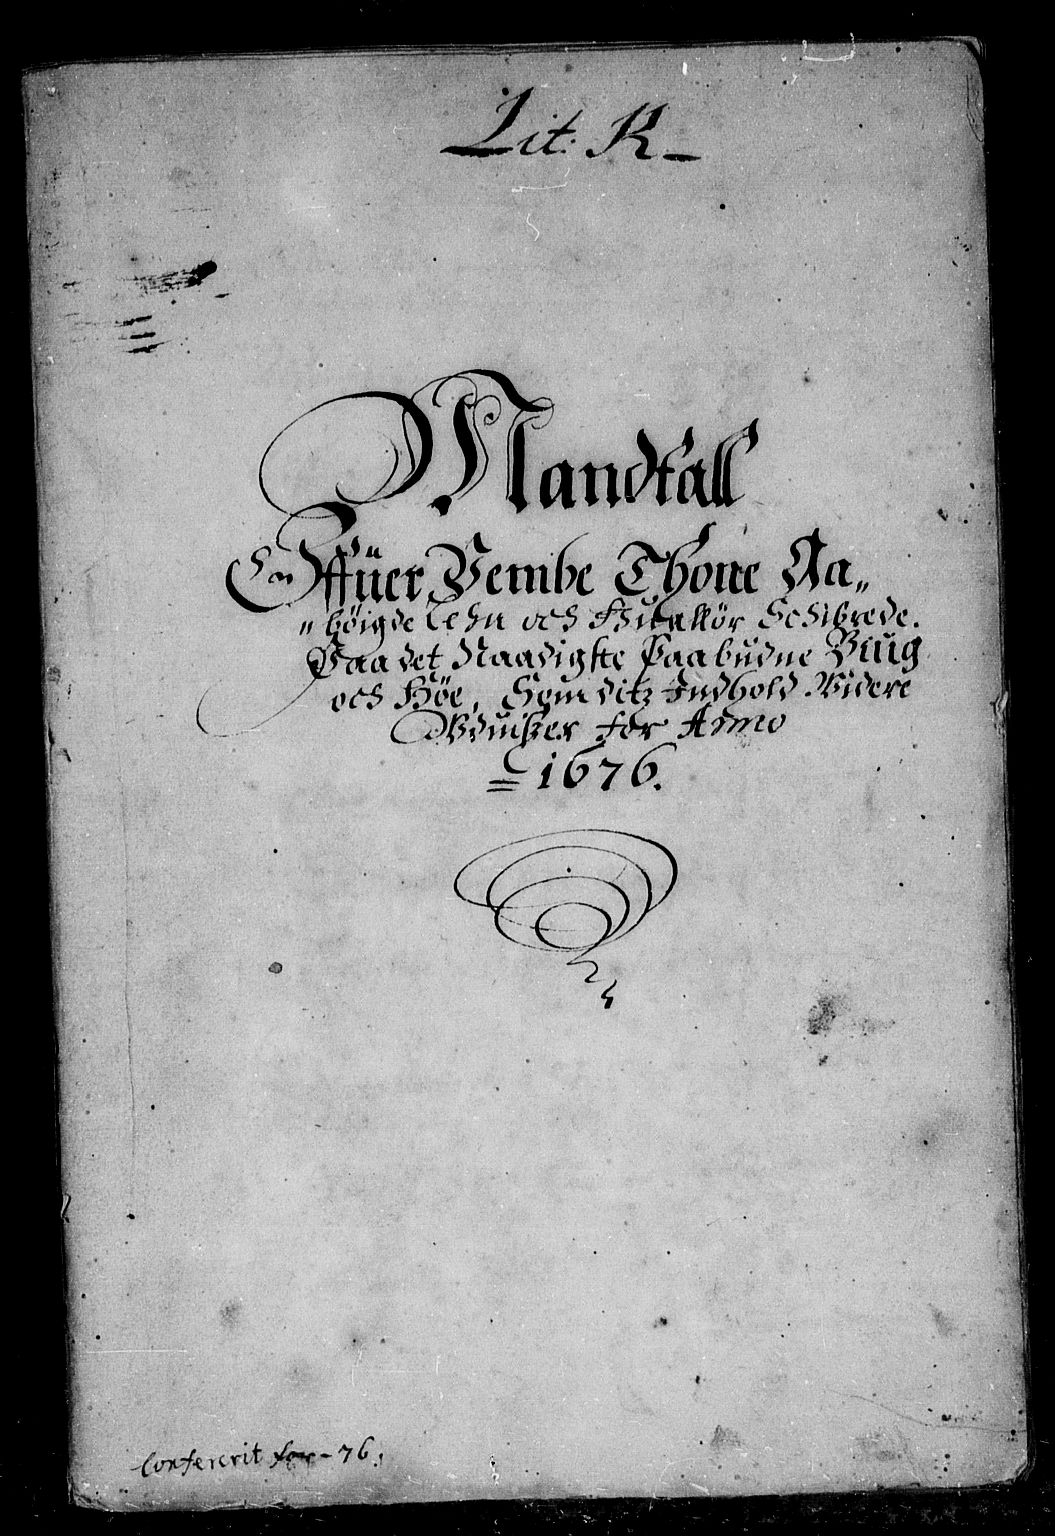 Lit: K
Mandtall
Offuer Vembe Thone Aa„
„bøigde Lehn och Huitløs Schibrede.
Paa det Naadigste Paabudne Biug
och Høe, Som ditz Indhold Videre
Vduiszer for Anno
= 1676.
Confererit for - 76.